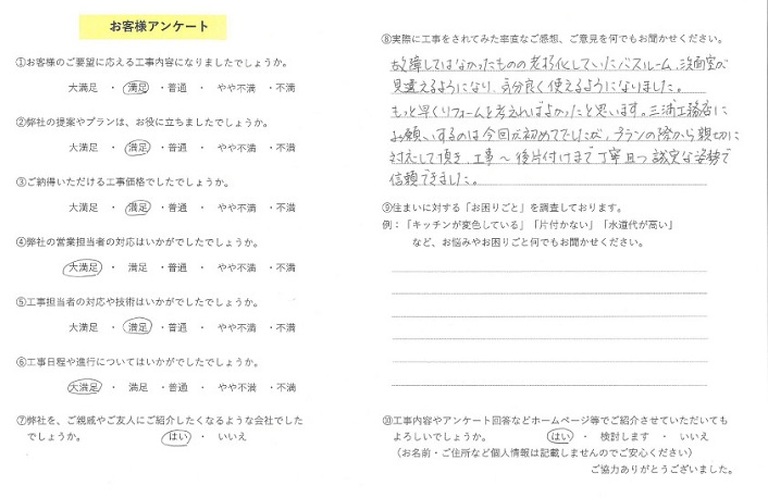 お客様アンケート
①お客様のご要望に応える工事内容になりましたでしょうか。
大満足 ・ 満足 ・普通 ・ やや不満 ・不満
②弊社の提案やプランは、お役に立ちましたでしょうか。
大満足 ・ 満足 ・普通 ・ やや不満 ・不満
③ご納得いただける工事価格でしたでしょうか。
大満足 ・ 満足 ・普通 ・ やや不満 ・不満
④弊社の営業担当者の対応はいかがでしたでしょうか。
大満足 ・ 満足 ・普通 ・ やや不満 ・不満
⑤工事担当者の対応や技術はいかがでしたでしょうか。
大満足 ・ 満足 ・普通 ・ やや不満 ・不満
⑥工事日程や進行についてはいかがでしたでしょうか。
大満足 ・ 満足 ・普通 ・ やや不満 ・不満
⑦弊社を、ご親戚やご友人にご紹介したくなるような会社でした
でしょうか。 はい ・ いいえ
⑧実際に工事をされてみた率直なご感想、ご意見を何でもお聞かせください。
故障してはなかったものの老朽化していたバスルーム、洗面室が
見違えるようになり、気分良く使えるようになりました。
もっと早くリフォームを考えればよかったと思います。三浦工務店に
お願いするのは今回が初めてでしたが、プランの際から親切に
対応して頂き、工事〜後片付けまで丁寧且つ誠実な姿勢で
信頼できました。
⑨住まいに対する「お困りごと」を調査しております。
例:「キッチンが変色している」「片付かない」「水道代が高い」
など、お悩みやお困りごと何でもお聞かせください。
⑩工事内容やアンケート回答などホームページ等でご紹介させていただいても
よろしいでしょうか。 はい ・ 検討します ・ いいえ
（お名前・ご住所など個人情報は記載しませんのでご安心ください）
ご協力ありがとうございました。